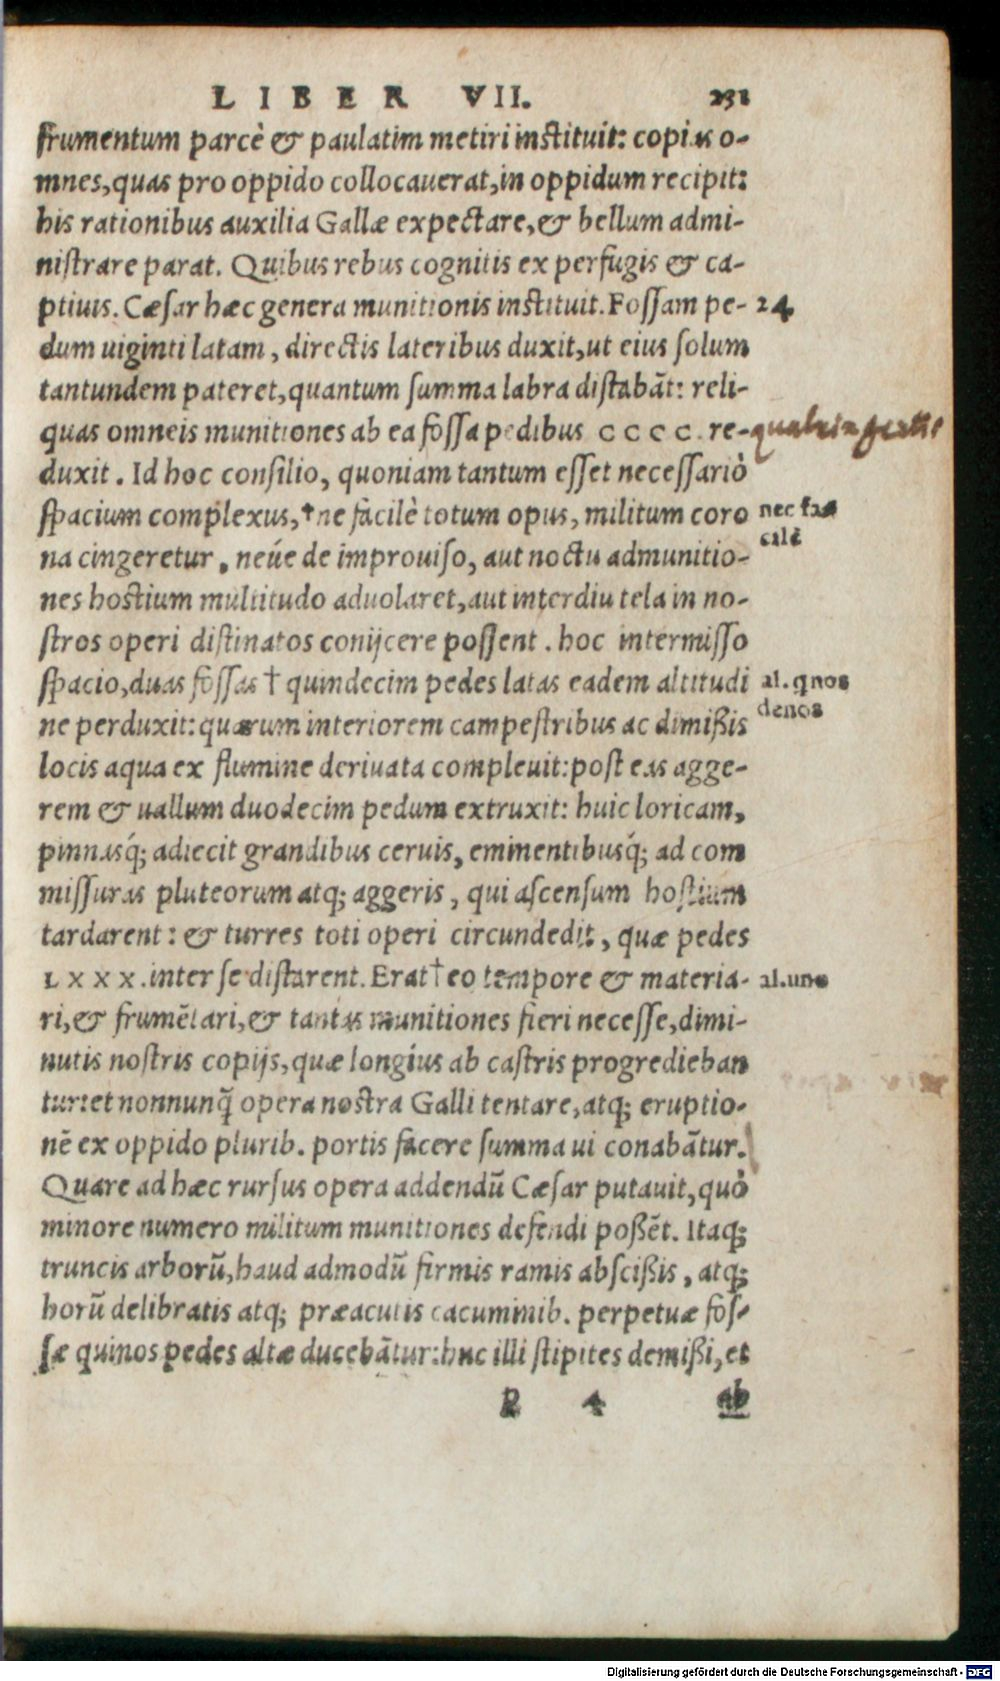 LIBER VII. 231
frumentum parcè & paulatim metiri instituit: copias o-
mnes, quas pro oppido collocauerat, in oppidum recipit:
his rationibus auxilia Gallæ expectare, & bellum admi-
nistrare parat. Quibus rebus cognitis ex perfugis & ca-
ptiuis. Cæsar hæc genera munitionis instituit. Fossam pe- 24
dum uiginti latam, directis lateribus duxit, ut eius solum
tantundem pateret, quantum summa labra distabāt: reli-
quas omneis munitiones ab ea fossa pedibus cccc. re-
duxit. Id hoc consilio, quoniam tantum esset necessariò
spacium complexus, †ne facilè totum opus, militum coro nec fa
na cingeretur, neúe de improuiso, aut noctu admunitio- cilè
nes hostium multitudo aduolaret, aut interdiu tela in no-
stros operi distinatos conijcere possent. hoc intermisso
spacio, duas fossas † quindecim pedes latas eadem altitudi al. qnos
ne perduxit: quarum interiorem campestribus ac dimißis denos
locis aqua ex flumine deriuata compleuit: post eas agge-
rem & uallum duodecim pedum extruxit: huic loricam,
pinnasq́; adiecit grandibus ceruis, eminentibusq́; ad com
missuras pluteorum atq; aggeris, qui ascensum hostium
tardarent: & turres toti operi circundedit, quæ pedes
LXXX. inter se distarent. Erat †eo tempore & materia- al. uno
ri, & frumētari, & tantas munitiones fieri necesse, dimi-
nutis nostris copijs, quæ longius ab castris progredieban
tur: et nonnunq̄ opera nostra Galli tentare, atq; eruptio-
nē ex oppido plurib. portis facere summa ui conabātur.
Quare ad hæc rursus opera addendū Cæsar putauit, quò
minore numero militum munitiones defendi poßēt. Itaq;
truncis arborū, haud admodū firmis ramis abscißis, atq;
horū delibratis atq; præacutis cacuminib. perpetuæ fos-
sæ quinos pedes altæ ducebātur: huc illi stipites demißi, et
P 4 ab
Digitalisierung gefördert durch die Deutsche Forschungsgemeinschaft - DFG